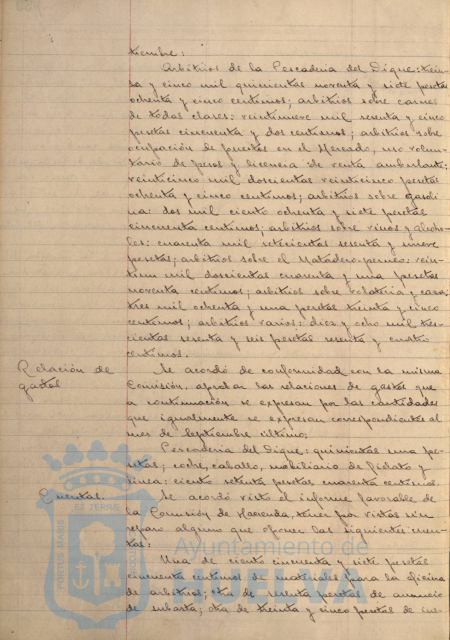 tiembre:
Arbitrios de la Pescaderia del Dique: trein-
ta y cinco mil quinientas noventa y siete pesetas
ochenta y cinco centimos; arbitrios sobre carnes
de todas clases: veintinueve mil setenta y cinco
pesetas cincuenta y dos centimos; arbitrios sobre
ocupación de puestos en el Mercado, uso volun-
tario de pesos y licencia de venta ambulante:
veinticinco mil doscientas veinticinco pesetas
ochenta y cinco centimos; arbitrios sobre gasoli-
na: dos mil ciento ochenta y siete pesetas
cincuenta centimos; arbitrios sobre vinos y alcoho-
les: cuarenta mil setecientas sesenta y nueve
pesetas; arbitrios sobre el Matadero-perneo: vein-
tiun mil doscientas cuarenta y una pesetas
noventa centimos; arbitrios sobre volateria y caza:
tres mil ochenta y una pesetas treinta y cinco
centimos; arbitrios varios: diez y ocho mil tres-
cientas sesenta y seis pesetas sesenta y cuatro
centimos.
Relación de
gastos
Se acordó de conformidad con la misma
Comisión, aprobar las relaciones de gastos que
a continuación se expresan por las cantidades
que igualmente se expresan correspondientes al
mes de Septiembre último;
Pescaderia del Dique: quinientas una pe-
setas; coche, caballo, mobiliario de fielato y
linea: ciento setenta pesetas cuarenta centimos.
Cuentas.
Se acordó visto el informe favorable de
la Comisión de Hacienda, tener por vistas sin
reparo alguno que oponer las siguientes cuen-
tas:
Una de ciento cincuenta y siete pesetas
cincuenta centimos de materiales para la oficina
de arbitrios; otra de sesenta pesetas de anuncio
de subasta; otra de treinta y cinco pesetas de
PORTUS MARIS ET TERRE
Ayuntamiento de
HUELVA